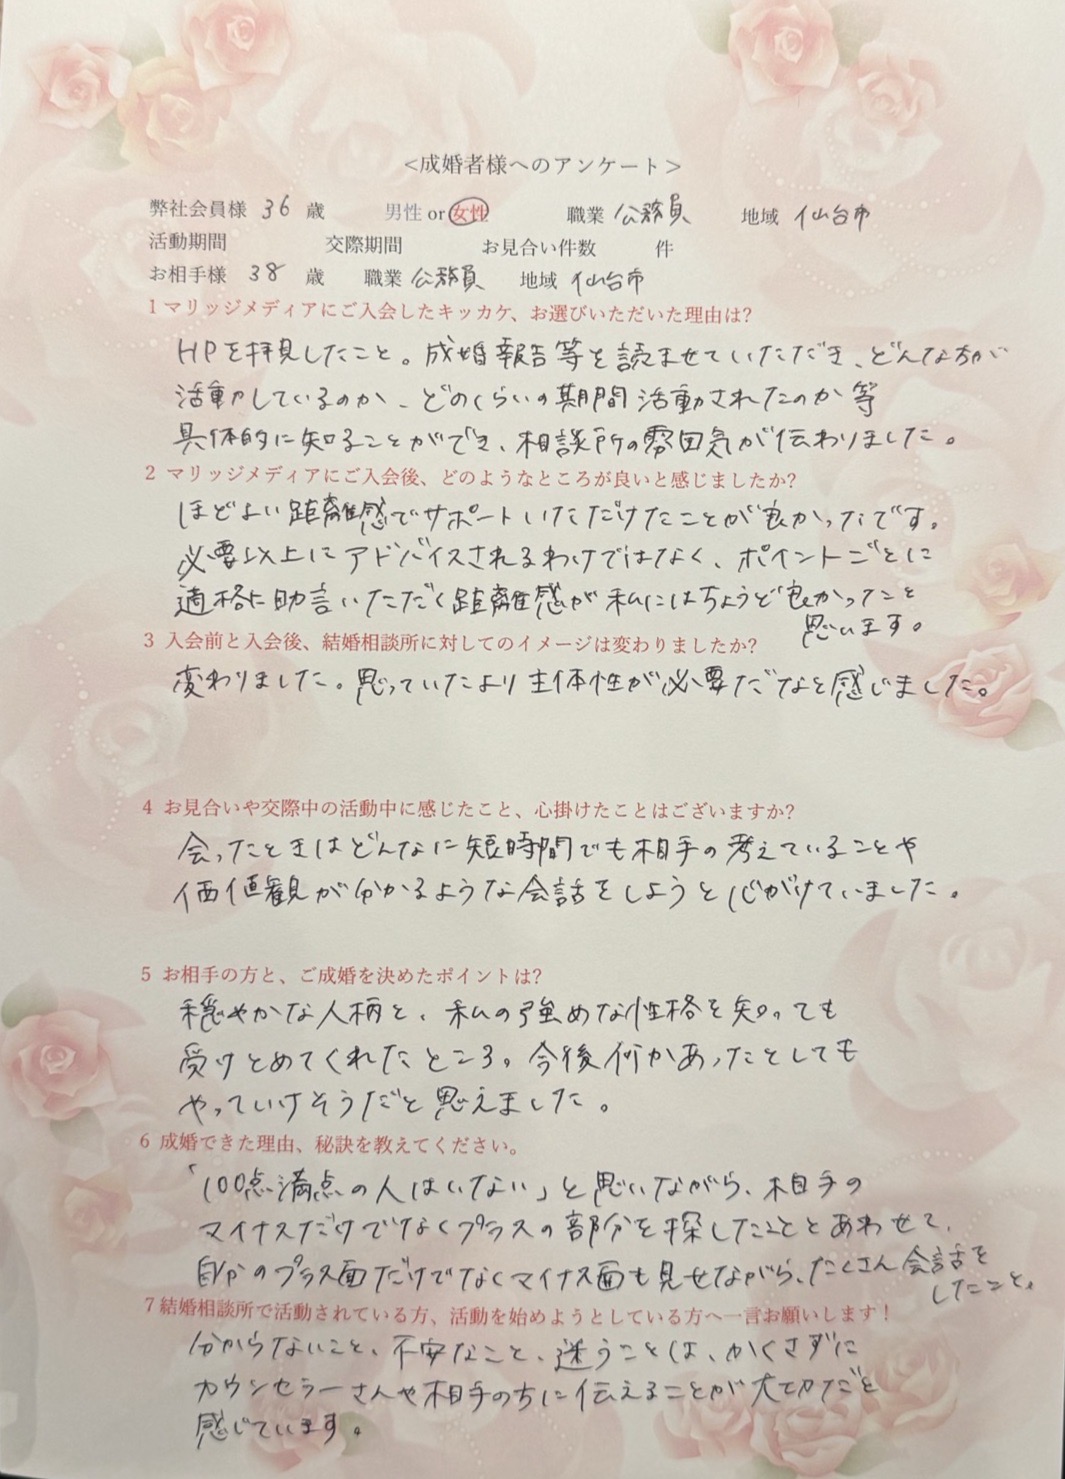 <成婚者様へのアンケート>
弊社会員様 36 歳 男性 or 女性 職業 公務員 地域 仙台市
活動期間 交際期間 お見合い件数 件
お相手様 38 歳 職業 公務員 地域 仙台市
1 マリッジメディアにご入会したキッカケ、お選びいただいた理由は?
HPを拝見したこと。成婚報告等を読ませていただき、どんな方が
活動しているのか、どのくらいの期間活動されたのか等
具体的に知ることができ、相談所の雰囲気が伝わりました。
2 マリッジメディアにご入会後、どのようなところが良いと感じましたか?
ほどよい距離感でサポートいただけたことが良かったです。
必要以上にアドバイスされるわけではなく、ポイントごとに
適格に助言いただく距離感が私にはちょうど良かったこと
思います。
3 入会前と入会後、結婚相談所に対してのイメージは変わりましたか?
変わりました。思っていたより主体性が必要だなと感じました。
4 お見合いや交際中の活動中に感じたこと、心掛けたことはございますか?
会ったときはどんなに短時間でも相手の考えていることや
価値観が分かるような会話をしようと心がけていました。
5 お相手の方と、ご成婚を決めたポイントは?
穏やかな人柄と、私の強めな性格を知っても
受けとめてくれたところ。今後何かあったとしても
やっていけそうだと思えました。
6 成婚できた理由、秘訣を教えてください。
「100点満点の人はいない」と思いながら、相手の
マイナスだけでなくプラスの部分を探したこととあわせて、
自分のプラス面だけでなくマイナス面も見せながら、たくさん会話を
したこと。
7 結婚相談所で活動されている方、活動を始めようとしている方へ一言お願いします!
分からないこと、不安なこと、迷うことは、かくさずに
カウンセラーさんや相手の方に伝えることが大切だと
感じています。